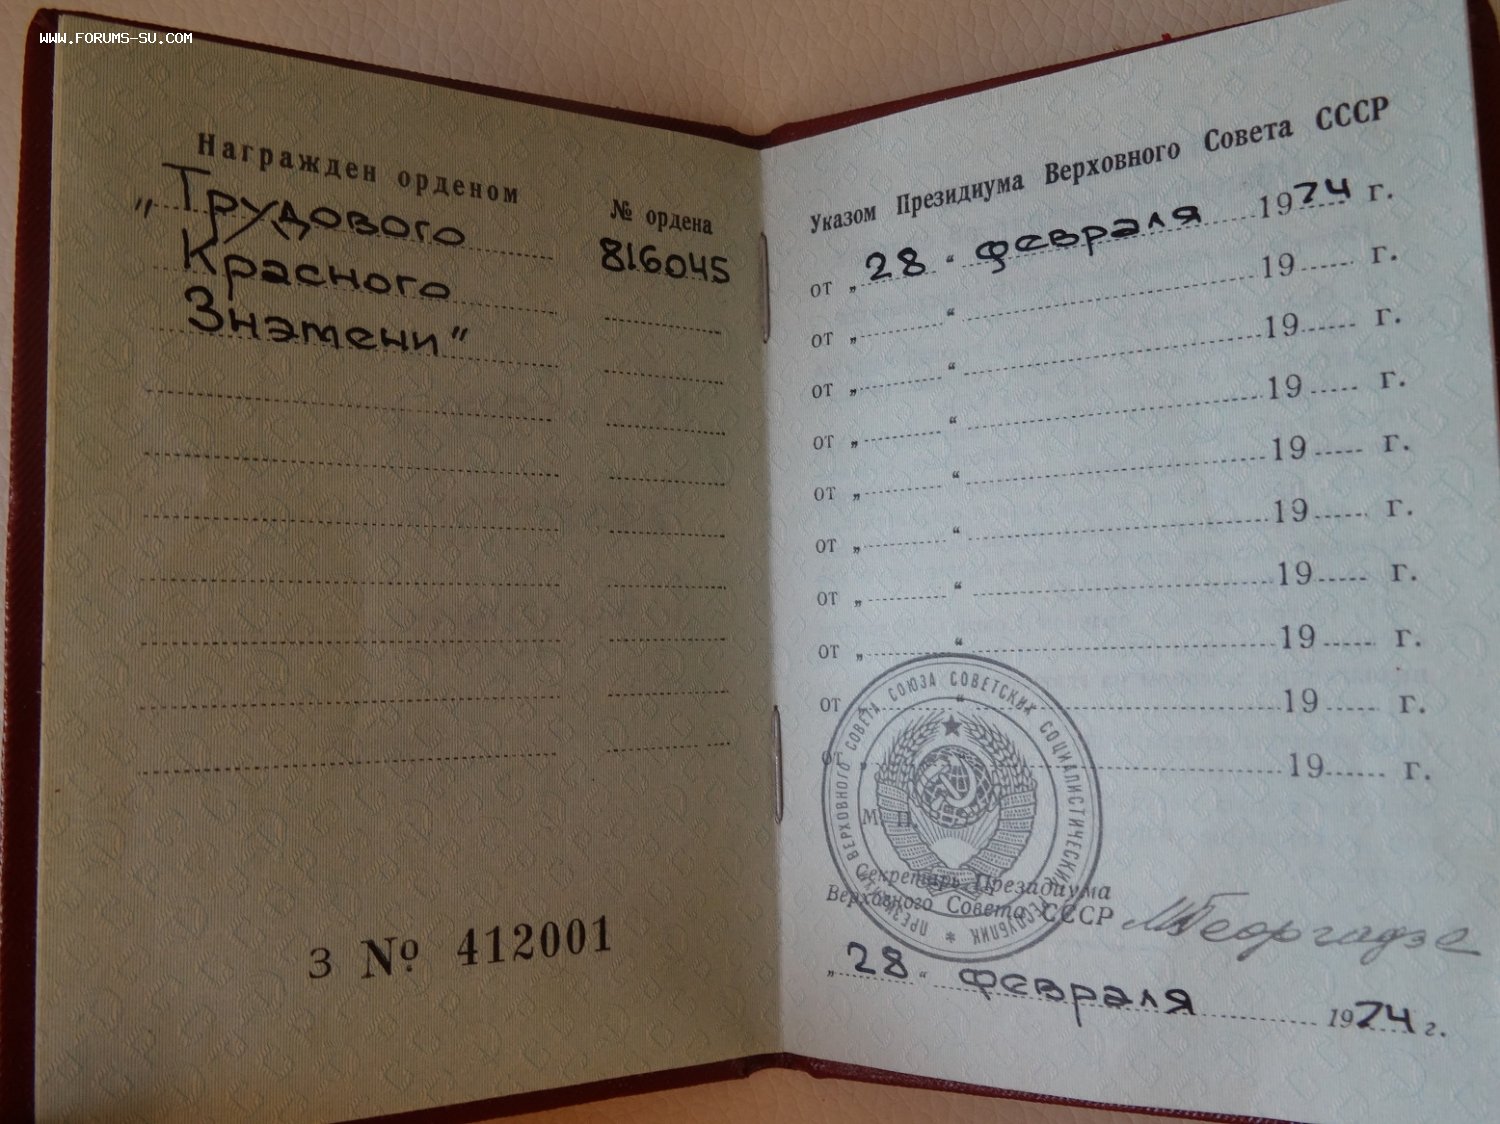 WWW.FORUMS-SU.COM
Награжден орденом
№ ордена
„Трудового
816045
Красного
Знамени"
З № 412001
Указом Президиума Верховного Совета СССР
от „28“ февраля 1974 г.
от „ “ 19 г.
от „ “ 19 г.
от „ “ 19 г.
от „ “ 19 г.
от „ “ 19 г.
от „ “ 19 г.
от „ “ 19 г.
от „ “ 19 г.
от „ “ 19 г.
ПРЕЗИДИУМ ВЕРХОВНОГО СОВЕТА СОЮЗА СОВЕТСКИХ СОЦИАЛИСТИЧЕСКИХ РЕСПУБЛИК *
М. П.
Секретарь Президиума
Верховного Совета СССР МГеоргадзе
„28“ февраля 1974 г.